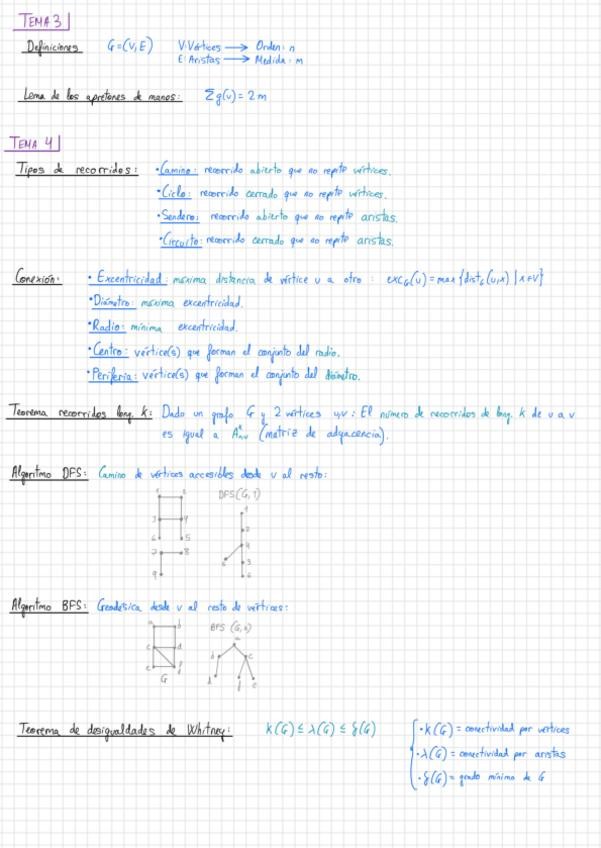 TEMA 3
Definiciones G=(V,E) V:Vértices → Orden: n
E: Aristas → Medida: m
Lema de los apretones de manos: Σg(v) = 2m
TEMA 4
Tipos de recorridos: • Camino: recorrido abierto que no repite vértices.
• Ciclo: recorrido cerrado que no repite vértices.
• Sendero: recorrido abierto que no repite aristas.
• Circuito: recorrido cerrado que no repite aristas.
Conexión: • Excentricidad: máxima distancia de vértice u a otro : exc_G(u) = max {dist_G(u,x) | x∈V}
• Diámetro: máxima excentricidad.
• Radio: mínima excentricidad.
• Centro: vértice(s) que forman el conjunto del radio.
• Periferia: vértice(s) que forman el conjunto del diámetro.
Teorema recorridos long. k: Dado un grafo G y 2 vértices u,v : El número de recorridos de long. k de u a v
es igual a (matriz de adyacencia).
Algoritmo DFS: Camino de vértices accesibles desde v al resto:
DFS(G,1)
Algoritmo BFS: Geodésica desde v al resto de vértices:
BFS (G,a)
G
Teorema de desigualdades de Whitney: K(G) ≤ λ(G) ≤ δ(G) • K(G) = conectividad por vértices
• λ(G) = conectividad por aristas
• δ(G) = grado mínimo de G